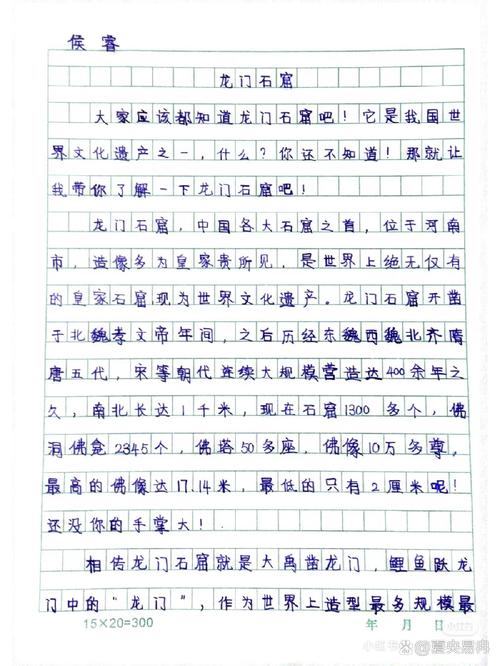 侯睿
龙门石窟
大家应该都知道龙门石窟吧！它是我国世
界文化遗产之一，什么？你还不知道！那就让
我带你了解一下龙门石窟吧！
龙门石窟，中国各大石窟之首，位于河南
市，造像多为皇家贵所见，是世界上绝无仅有
的皇家石窟现为世界文化遗产。龙门石窟开凿
于北魏孝文帝年间，之后历经东魏西魏北齐隋
唐五代，宋等朝代连续大规模营造达400余年之
久，南北长达1千米，现在石窟1300多个，佛
洞佛龛2345个，佛塔50多座，佛像10万多尊。
最高的佛像达17.14米，最低的只有2厘米呢！
还没你的手掌大！
相传龙门石窟就是大禹凿龙门，鲤鱼跃龙
门中的“龙门”，作为世界上造型最多规模最
15×20=300 年 月 日
小红书